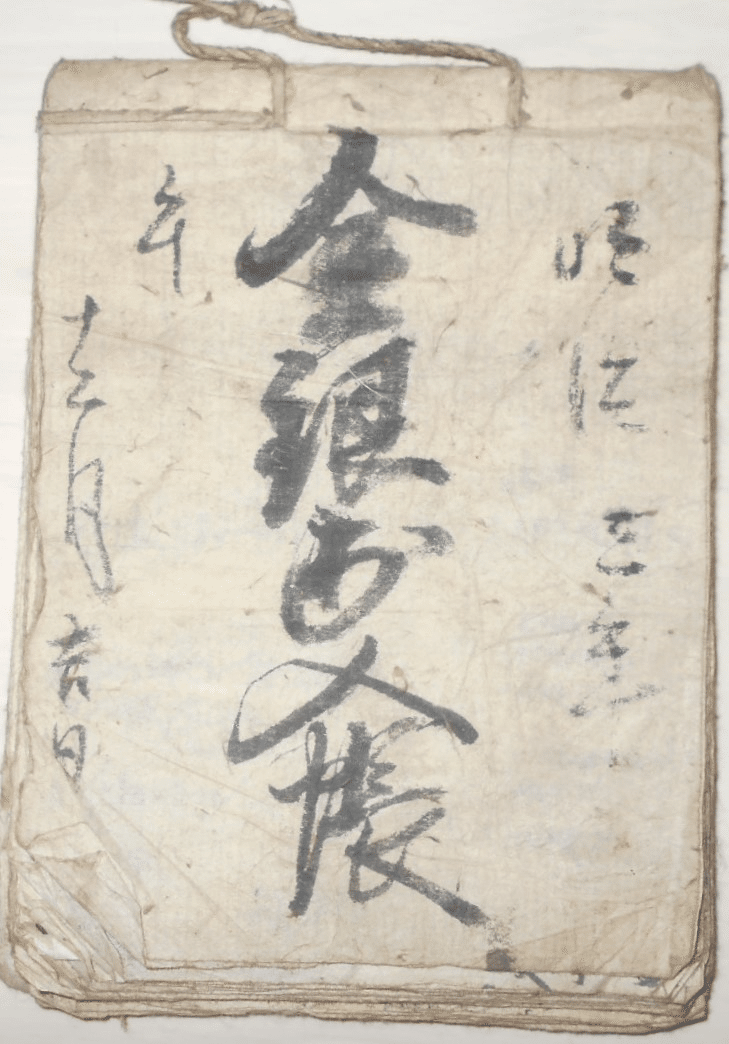 明治三庚
金銀出入帳
午
十二月吉日